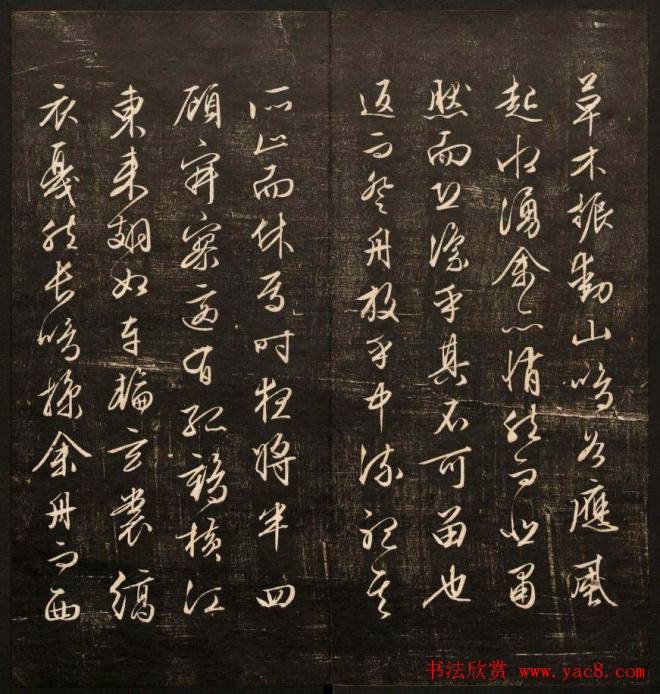 草木振動山鳴谷應風
起水湧余亦悄然而悲肅
然而恐凜乎其不可留也
返而登舟放乎中流聽其
所止而休焉時夜將半四
顧寂寥適有孤鶴橫江
東來翅如車輪玄裳縞
衣戛然長鳴掠余舟而西
书法欣赏 www.yac8.com